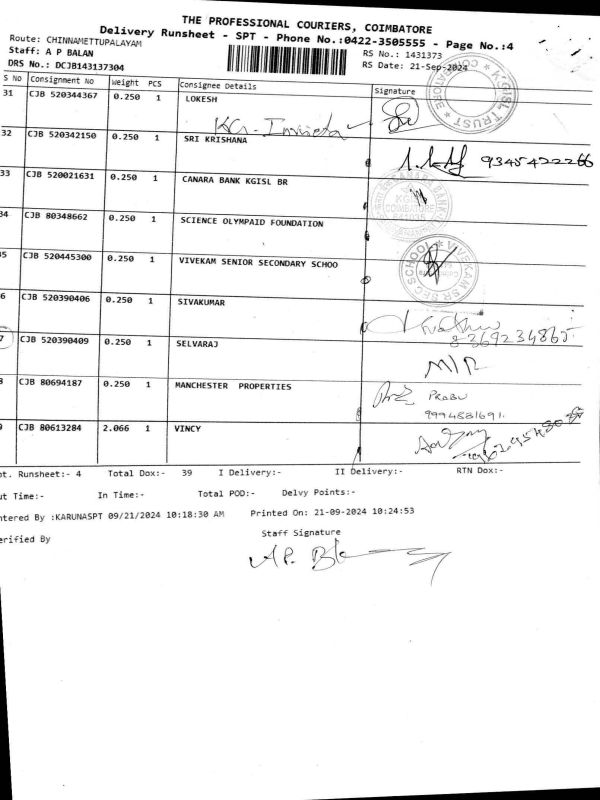 THE PROFESSIONAL COURIERS, COIMBATORE
Delivery Runsheet - SPT - Phone No.:0422-3505555 - Page No.:4
Route: CHINNAMETTUPALAYAM
RS No.: 1431373
Staff: A P BALAN
RS Date: 21-Sep-2024
DRS No.: DCJB143137304
S No Consignment No Weight PCS Consignee Details Signature
31 CJB 520344367 0.250 1 LOKESH
KGISL TRUST * COIMBATORE *
32 CJB 520342150 0.250 1 SRI KRISHANA
9345422266
33 CJB 520021631 0.250 1 CANARA BANK KGISL BR
CANARA BANK
COIMBATORE
641035
34 CJB 80348662 0.250 1 SCIENCE OLYMPAID FOUNDATION
5 CJB 520445300 0.250 1 VIVEKAM SENIOR SECONDARY SCHOO
VIVEKAM SR SEC SCHOOL
6 CJB 520390406 0.250 1 SIVAKUMAR
8369234865
7 CJB 520390409 0.250 1 SELVARAJ
M/R
8 CJB 80694187 0.250 1 MANCHESTER PROPERTIES
PRABU
9994881691.
9 CJB 80613284 2.066 1 VINCY
ot. Runsheet:- 4 Total Dox:- 39 I Delivery:- II Delivery:- RTN Dox:-
ut Time:- In Time:- Total POD:- Delvy Points:-
ntered By :KARUNASPT 09/21/2024 10:18:30 AM Printed On: 21-09-2024 10:24:53
erified By Staff Signature